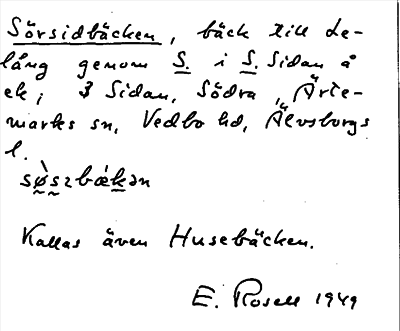 Sörsidbäcken, bäck till Le-
lång genom S. i S. Sidan å
ek; Sidan, Södra, Ärte-
marks sn, Vedbo hd, Älvsborgs
l.
Kallas även Husebäcken.
E. Rosell 1949